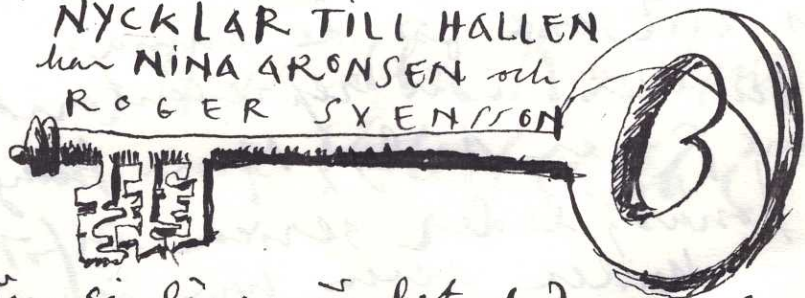 NYCKLAR TILL HALLEN
har NINA ARONSEN och
ROGER SVENSSON